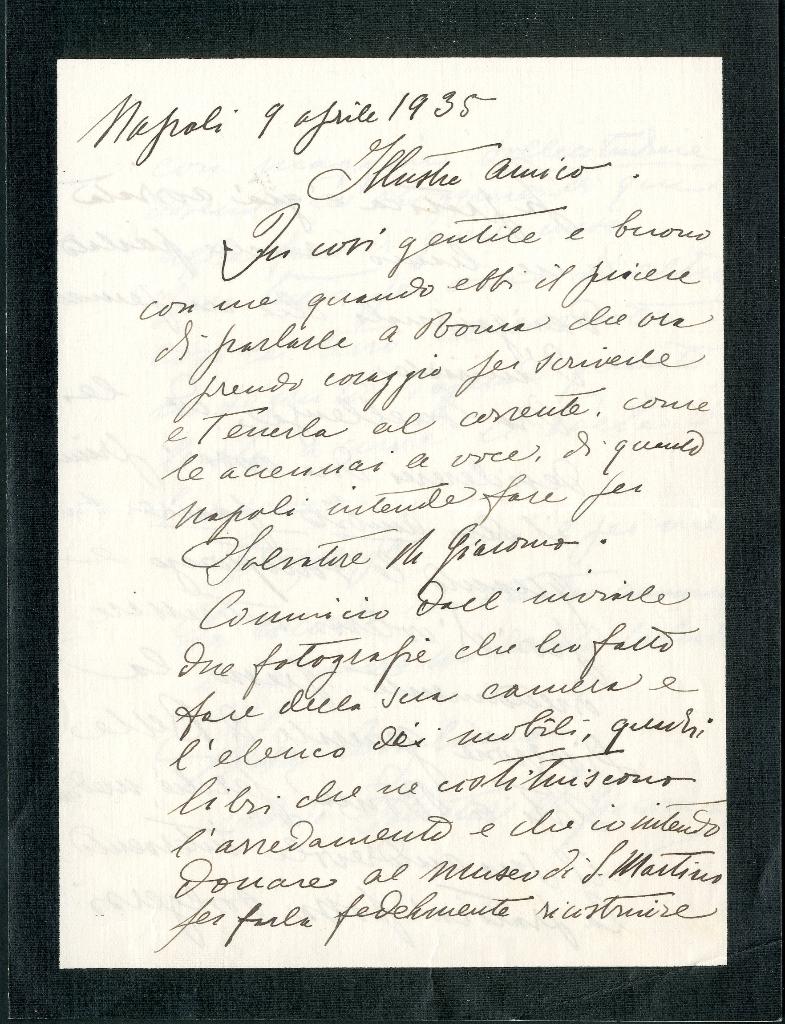 Napoli 9 aprile 1935
Illustre amico.
Fu così gentile e buono
con me quando ebbi il piacere
di parlarle a Roma che ora
prendo coraggio per scriverle
e tenerla al corrente, come
le accennai a voce, di quanto
Napoli intende fare per
Salvatore di Giacomo.
Comincio dall'inviarle
due fotografie che ho fatto
fare della sua camera e
l'elenco dei mobili, quadri
libri che ne costituiscono
l'arredamento e che io intendo
donare al Museo di S. Martino
per farla fedelmente ricostruire